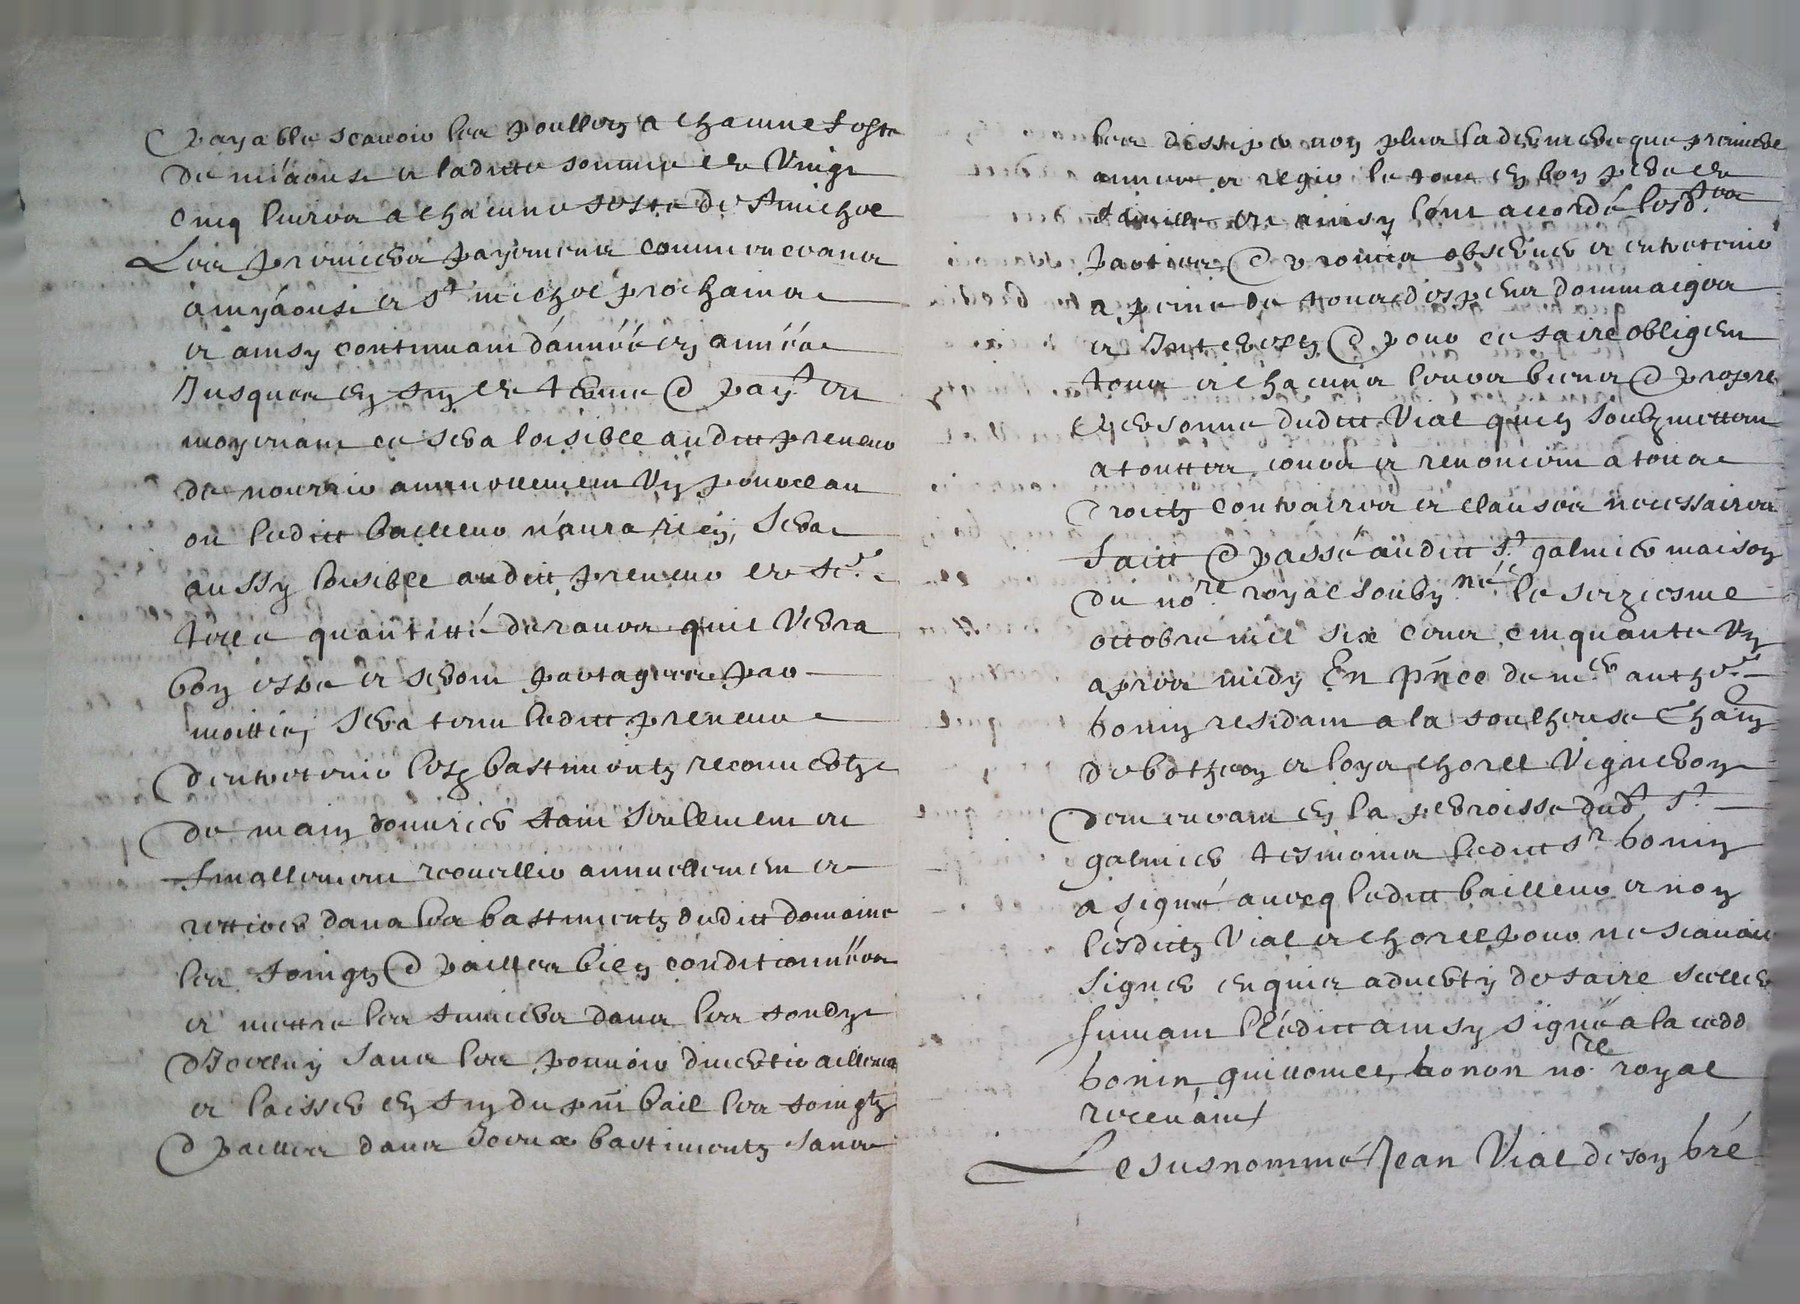 Payable scavoir les poulletz a chacune feste
de miaoust et laditte somme de vingt
cinq livres a chacune feste de st michel
Les premiers payements commenceans
a myaoust et st michel prochains
et ainsy continuant d'année en année
Jusques en fin de terme & pay.t et
moyenant ce sera loisible audict preneur
de nourrir annuellement un pourceau
ou ledict bailleur n'aura rien, sera
aussy loisible audict preneur de
telle quantitté de raves quil verra
bon estre et seront partagees par
moittie, sera tenu ledict preneur
d'entretenir lesd bastimentz recouvertz
de main d'ouvrier tant seulement et
finallement recueillir annuellement et
rettirer dans les bastimentz dudict domaine
les foingtz & pailles bien conditionnées
et mettre les fumiers dans les fondz
d'Icelluy sans les pouvoir divertir ailleurs
et laisser en fin du pnt bail les foingtz
& pailles dans Iceux bastimentz sans
les dissiper non plus la derniere que premiere
année et regir le tout en bon pere de
famille et ainsy l'ont accordé lesd.
parties & promis observer et entretenir
a peine de tous despens dommaiges
et Interestz & pour ce faire obligent
tous et chacuns leurs biens & propre
personne dudict Vial quien soubzmettant
a touttes cours et renoncent a tous
droictz contraires et clauses necessaires
faict & passé audict st galmier maison
du no.re royal soubzné le seiziesme
octobre mil six cens cinquante un
apres midy En pnce de me anthe
bonin residant a la foulhouse
de botheon et loys chorel vigneron
demeurant en la parroisse dud st
galmier tesmoins ledict sr bonin
a signé avecq ledict bailleur et non
lesdictz Vial et chorel pour ne scavoir
signer enquis advertiz de faire sceller
suivant l'édict ainsy signé a la cedd
bonin, guillomet, bonon no.re royal
recevant
Le susnommé Jean Vial de son bré